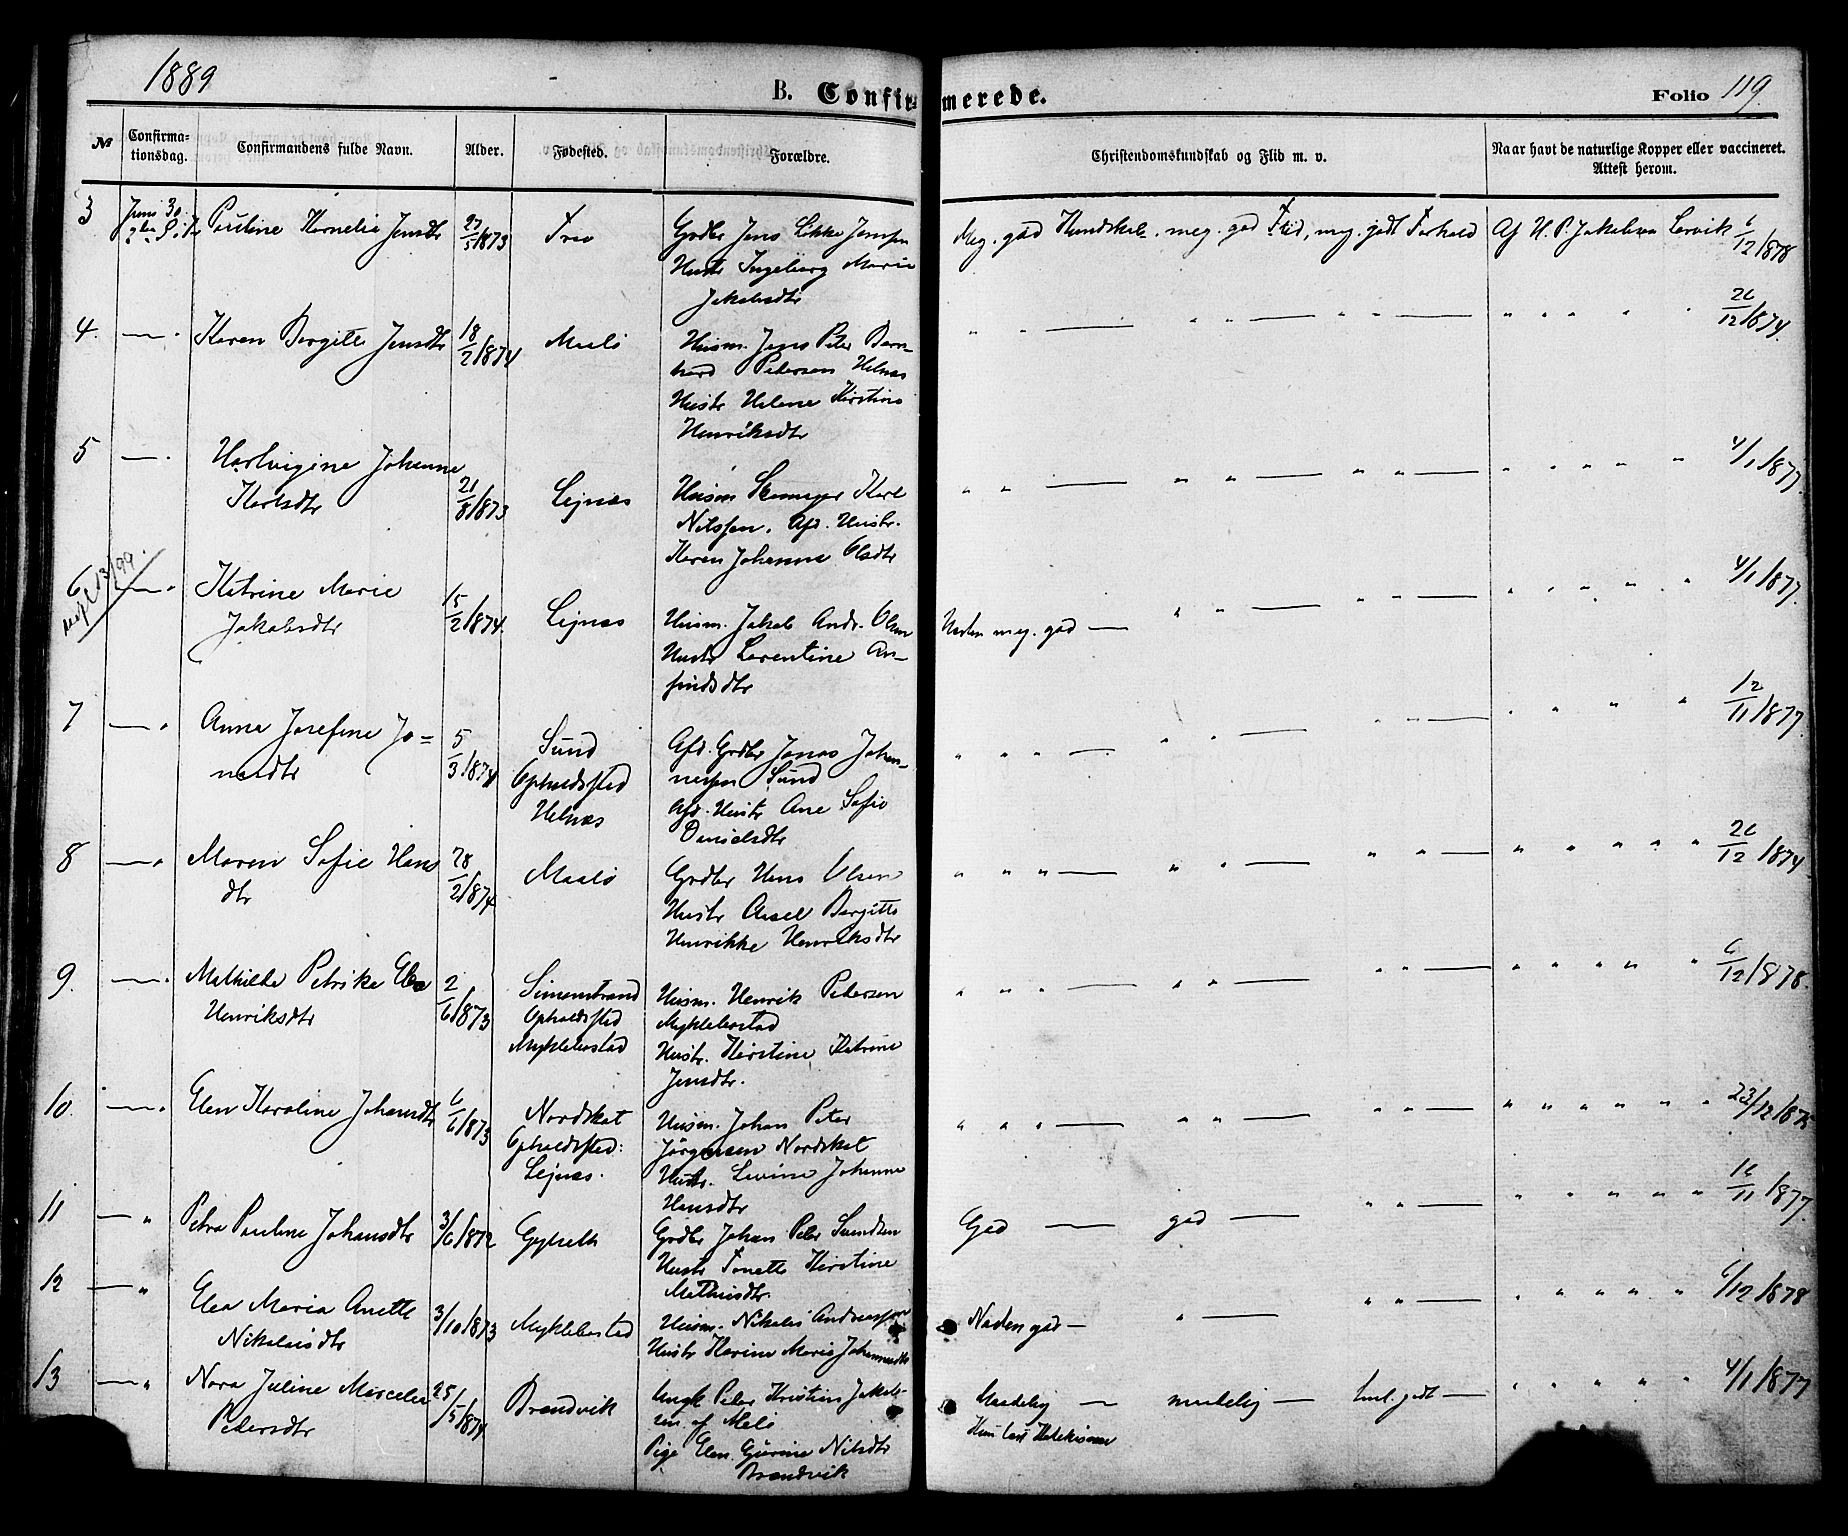 1889
B. Confirmerede.
Folio 119.
№
Confirmationsdag.
Confirmandens fulde Navn.
Alder.
Fødested.
Forældre.
Christendomskundskab og Flid m. v.
Naar havt de naturlige Kopper eller vaccineret. Attest herom.
3
Juni 30
Pauline Kornelia Jensdtr
23/5 1873
Grdbr Jens Likke Jensen
Hustr Ingeborg Marie
Jakobsdtr
Meg. god Kundskab. meg. god Flid, meg. godt Forhold
Af H. P. Jakobsen Lervik 6/12 1878
4. — "
Karen Bergitte Jensdtr
18/2 1874
Maalø
Husm. Jens Peter Bern-
hard Pedersen Helnæs
Hustr Helene Kirstine
Henriksdtr
" " — " " — " " — " " " " 26/12 1874.
5 — "
Hartvigine Johanne
Karlsdtr
21/8 1873
Lejnæs
Husm Karl
Nilssen. Afd. Hustr.
Karen Johanne Olsdtr
" " — " " — " " — " " " " " 4/1 1877.
6 — "
13/99.
Katrine Marie
Jakobsdtr
15/2 1874.
Lejnæs
Husm. Jakob Andr. Olsen
Hustr Lorentine An-
findsdtr
Næsten meg. god — " " — " " — " " " " " 4/1 1877.
7 — "
Anna Josefine Jo=
nasdtr
5/3 1874
Sund
Opholdssted
Helnæs
Afd. Grdbr Jonas Johan-
nessen Sund
Afd. Hustr Ane Sofie
Danielsdtr
" " " — " " — " " — " " " " 12/11 1877.
8 — "
Maren Sofie Hans
dtr
28/2 1874
Maalø
Grdbr Hans Olsen
Hustr Bergitte
Henrikke Henriksdtr
" " " — " " — " " — " " " " " 26/12 1874.
9. — "
Mathilde Petrike Elea
Henriksdtr
2/6 1873
Simenstrand
Opholdssted
Myklebostad
Husm. Henrik Pedersen
Myklebostad
Hustr. Kirstine Katrine
Jensdtr.
" " " — " " — " " — " " " " " 6/12 1878.
10. — "
Elen Karoline Johansdtr
6/6 1873
Nordskot
Opholdssted:
Lejnæs.
Husm. Johan Peter
Jørgensen Nordskot
Hustr. Lovine Johanne
Hansdtr
" " " — " " — " " — " " " " " " 23/12 1875
11 — "
Petra Pauline Johansdtr
3/6 1872
Grdbr Johan Peter Sundsen
Hustr Tonette Kirstine
Mathisdtr.
God — god — " " — " " " " " 16/11 1877.
12 — "
Elea Maria Anette
Nikolaisdtr
3/10 1873
Myklebostad
Husm. Nikolai Andreassen
Hustr Karine Marie Johannesdtr
god — " — " " — " " " " " 6/12 1878
13 — "
Nora Juline Marcelia
Pedersdtr
25/5 1874
Brandvik
Ungk Peter Kristian Jakob-
sen af Melø
Pige Elen Gurine Nilsdtr
Brandvik
Maadelig — maadelig — godt — " " " " " 4/1 1877